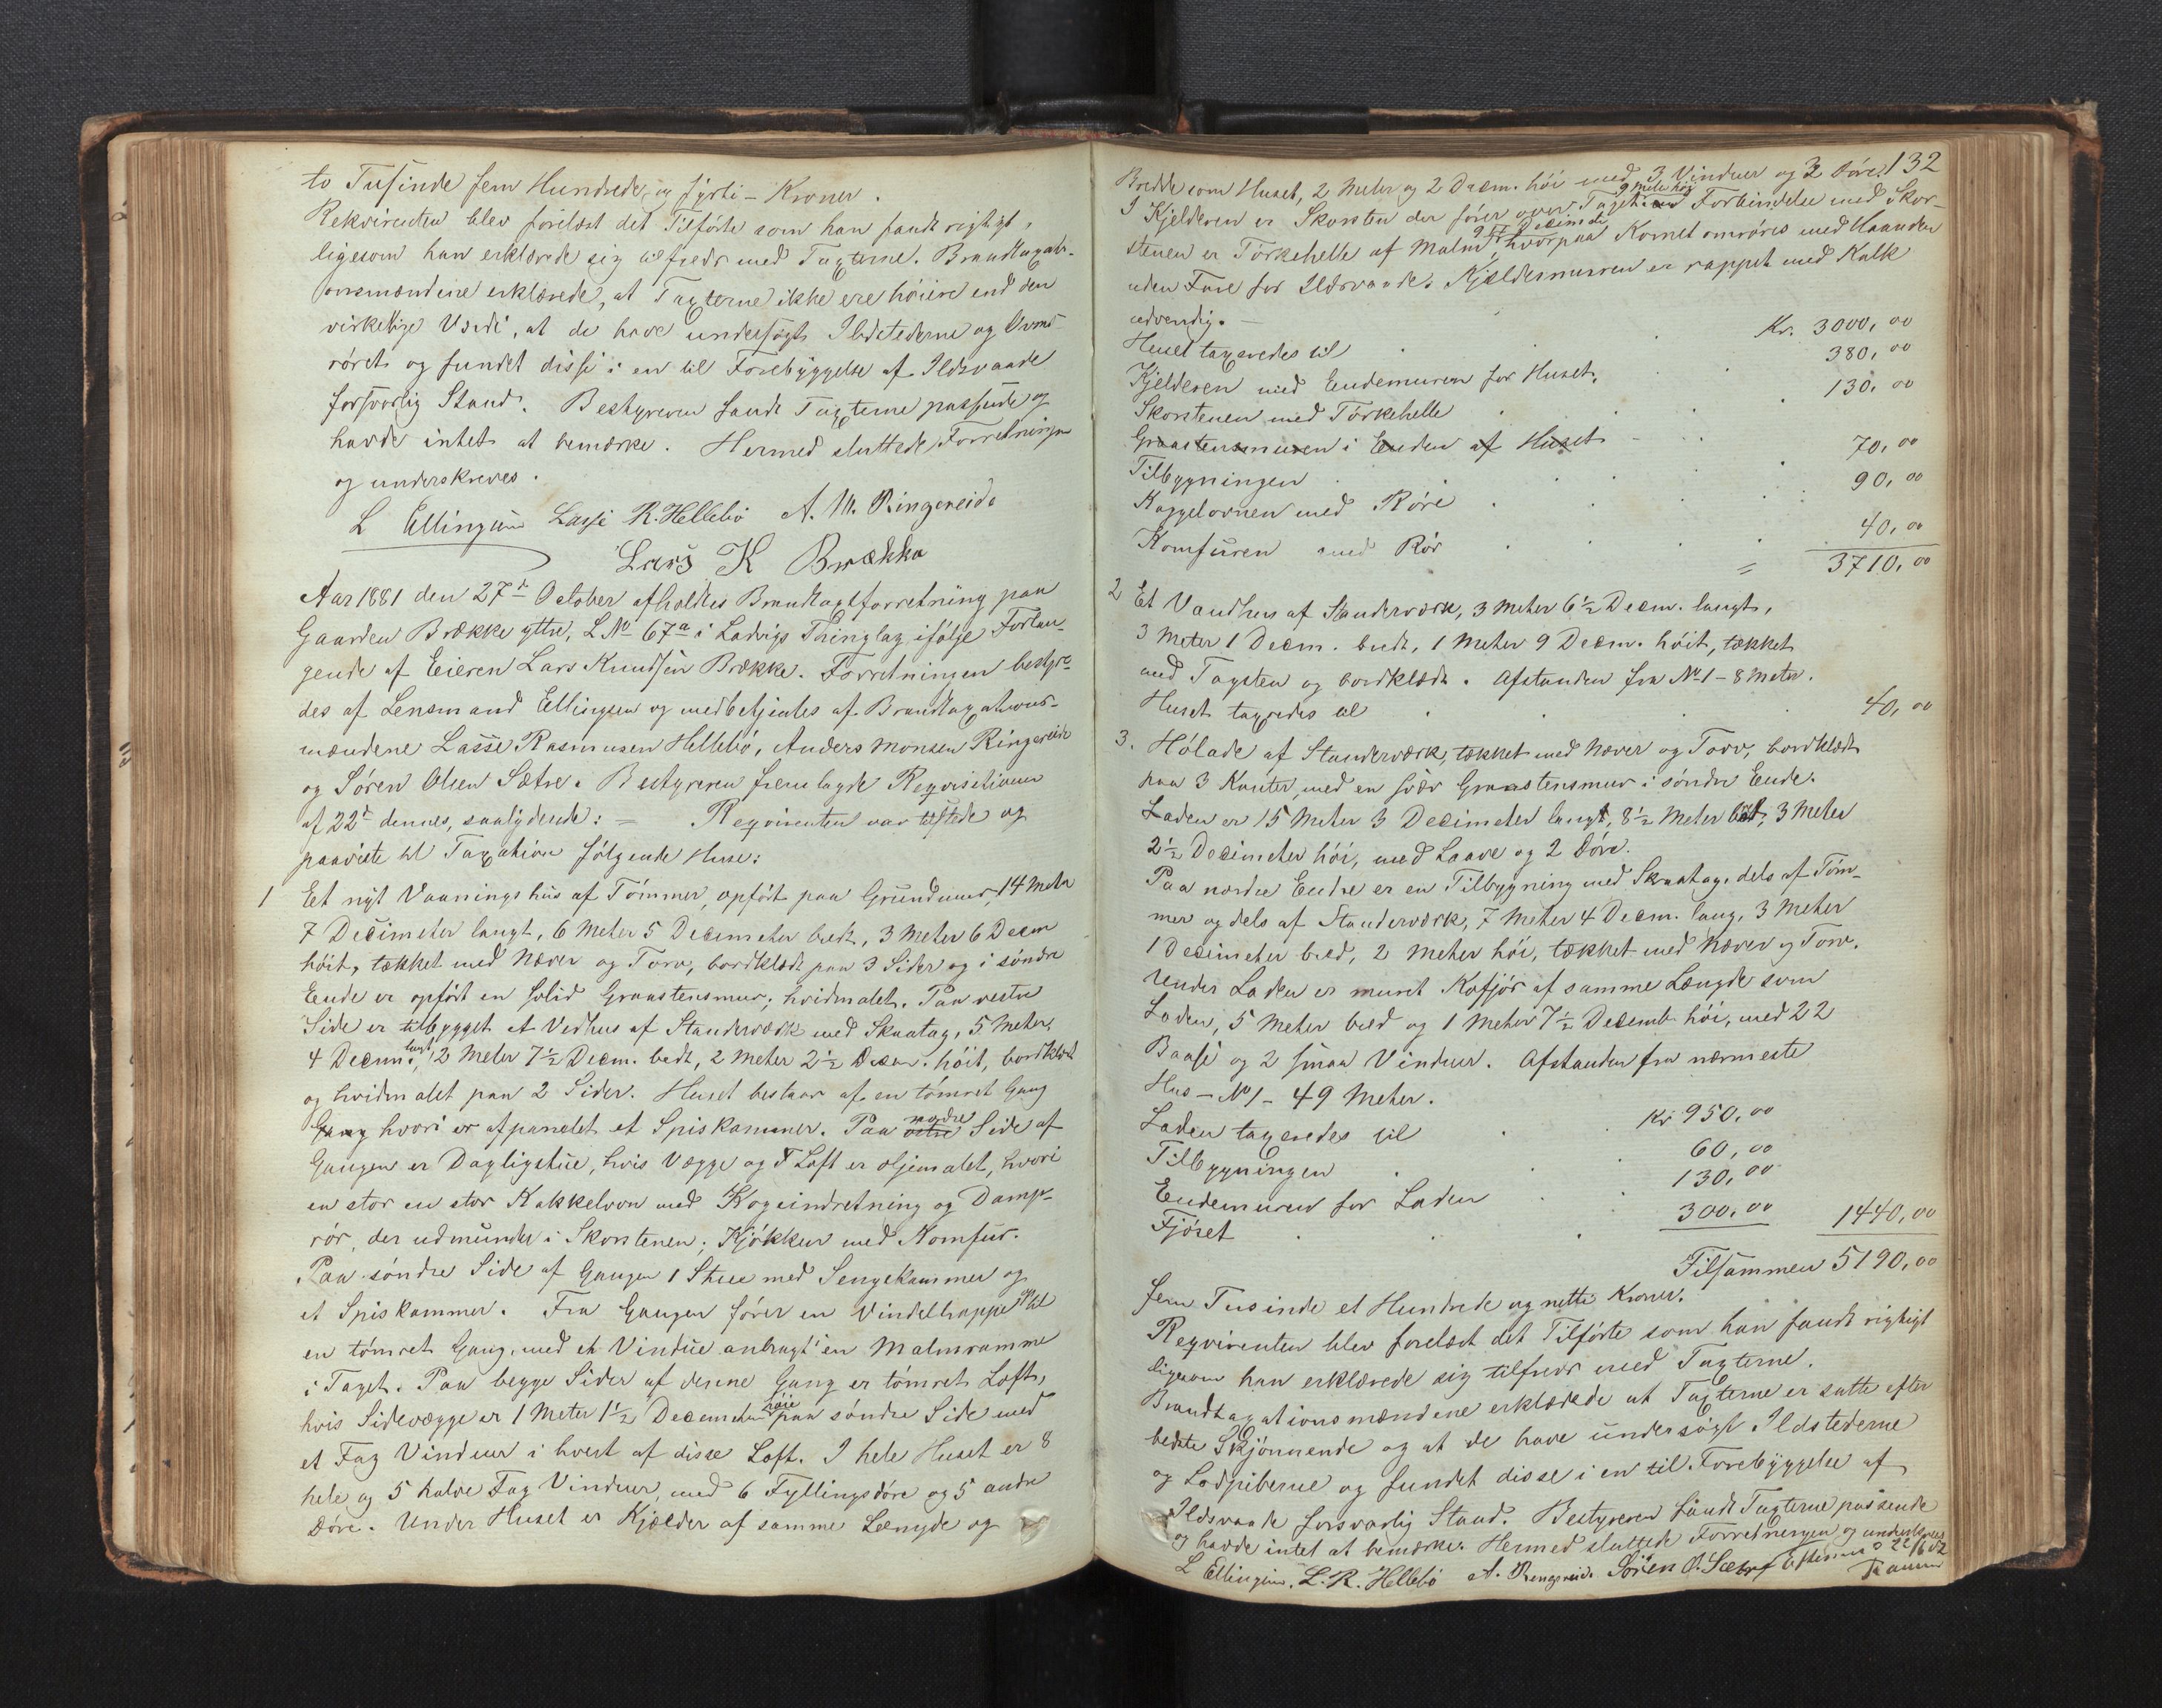 to Tusinde fem Hundrede og fýrti – Kroner.
Rekvirenten blev forelæst det Tilførte som han fandt rigtigt,
ligesom han erklærede sig tilfreds med Taxterne. Brandtaxati-
onsmændene erklærede, at Taxterne ikke ere høiere end den
virkelige Værdi, at de have undersøgt Ildstederne og Ovns-
røret og fundet disse i en til Forebyggelse af Ildsvaade
forsvarlig Stand. Bestyreren fandt Taxterne passende og
havde intet at bemærke. Hermed sluttede Forretningen
og underskreves.
L Ellingsen Lasse R. Hellebø A. M. Ringereide
Lars K Brækka
Aar 1881 den 27de October afholdtes Brandtaxtforretning paa
Gaarden Brække yttre, L No 67a i Ladvigs Thinglag ifølge Forlan-
gende af Eieren Lars Knudsen Brække. Forretningen bestyre-
des af Lensmand Ellingsen og medbetjentes af Brandtaxations-
mændene Lasse Rasmusen Hellebø, Anders Monsen Ringereide
og Søren Olsen Sætre. Bestyreren fremlagde Reqvisitionen
af 22de dennes, saalydende: = Reqvirenten var tilstede og
paaviste til Taxation følgende Huse:
1 Et nýt Vaaningshus af Tømmer, opført paa Grundmur, 14 Meter
7 Decimeter langt, 6 Meter 5 Decimeter bredt, 3 Meter 6 Decm
høit, tækket med Næver og Torv, bordklædt paa 3 Sider og i søndre
Ende er opført en solid Graastensmur, hvidmalet. Paa vestre
Side er tilbygget et Vedhus af Standerværk med Skraatag, 5 Meter
4 Decm. langt, 2 Meter 7½ Decm. bredt, 2 Meter 2½ Decm. høit, bordklædt
og hvidmalet paa 2 Sider. Huset bestaar af en tømret Gang
Gang hvori er afpanelet et Spiskammer. Paa østre nordre Side af
Gangen er Dagligstue, hvis Vægge og Loft er oljemalet, hvori
en stor en stor Kakkelovn med Kogeindretning og Damp-
rør, der udmunder i Skorstenen; Kjøkken med Komfur.
Paa søndre Side af Gangen 1 Stue med Sengekammer og
et Spiskammer. Fra Gangen fører en Vindeltrappe op til
en tømret Gang, med et Vindue anbragt i en Malmramme
i Taget. Paa begge Sider af denne Gang er tømret Loft,
hvis Sidevægge er 1 Meter 1½ Decimeter høie paa søndre Side med
et Fag Vinduer i hvert af disse Loft. I hele Huset er 8
hele og 5 halve Fag Vinduer, med 6 Fyllingsdøre og 5 andre
Døre. Under Huset er Kjælder af samme Længde og
132
Bredde som Huset, 2 Meter og 2 Decm. høi med 3 Vinduer og 2 Døre.
I Kjelderen er Skorsten der fører over Taget 9 Meter høi Forbindelse med Skor-
stenen er Tørkehelle af Malm, hvorpaa Kornet omrøres med Haanden
uden Fare for Ildsvaade. Kjeldermuren er rappet med Kalk
udvendig. –
Huset taxeredes til . . Kr. 3000,00
Kjelderen med Endemuren for Huset, . . 380,00
Skorstenen med Tørkehelle . . 130,00
Graastensmuren i Enden af Huset
Tilbygningen . . 70,00
Kaggelovnen med Røre . . 90,00
Komfuren med Rør . . 40,00
= 3710,00
2 Et Vandhus af Standerværk, 3 Meter 6½ Decm. langt,
3 Meter 1 Decm. bredt, 1 Meter 9 Decm. høit, tækket
med Tagsten og bordklædt. Afstanden fra No 1 – 8 Meter.
Huset taxeredes til . . 40,00
3. Hølade af Standerværk, tækket med Næver og Torv, bordklædt
paa 3 Kanter, med en svær Graastensmur i søndre Ende.
Laden er 15 Meter 3 Decimeter langt, 8½ Meter bredt, 3 Meter
2½ Decimeter høi, med Laave og 2 Døre.
Paa nordre Ende er en Tilbygning med Skraatag, dels af Tøm-
mer og dels af Standerværk, 7 Meter 4 Decm. lang, 3 Meter
1 Decimeter bred, 2 Meter høi, tækket med Næver og Torv.
Under Laden er muret Kofjøs af samme Længde som
Laden, 5 Meter bred og 1 Meter 7½ Decimeter høi, med 22
Baase og 2 smaa Vinduer. Afstanden fra nærmeste
Hus – No 1 – 49 Meter.
Laden taxeredes til . Kr 950,00
Tilbygningen . . 60,00
Endemuren for Laden . . 130,00
Fjøset . . 300,00 1440,00
Tilsammen 5190,00
fem Tusinde et Hundrede og nitti Kroner.
Reqvirenten blev forelæst det Tilførte som han fandt rigtigt
ligesom han erklærede sig tilfreds med Taxterne.
Brandtaxationsmændene erklærede at Taxterne er satte efter
bedste Skjønnende og at de have undersøgt Ildstederne
og Lodpiberne og fundet disse i en til Forebyggelse af
Ildsvaade forsvarlig Stand. Bestyreren fandt Taxterne passende
og havde intet at bemærke. Hermed sluttede Forretningen og underskreves
L Ellingsen. L. R. Hellebø A. Ringereide Søren O. Sætre